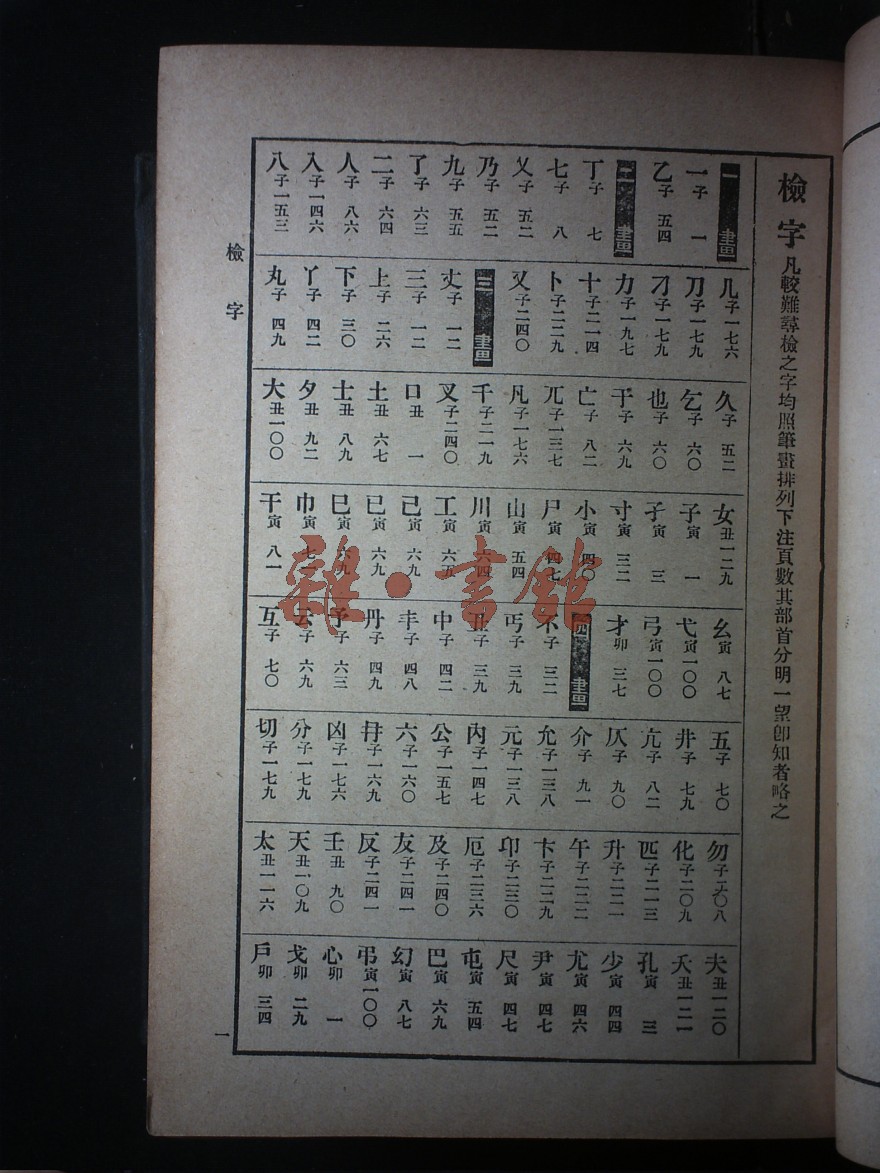 檢字 凡較難尋檢之字均照筆畫排列下注頁數其部首分明一望卽知者略之
一畫 一子一 乙子五四 二畫 丁子七 七子八 乂子五二 乃子五二 九子五五 了子六三 二子六四 人子八六 入子一四六 八子一五三
几子一七六 刀子一七九 刁子一七九 力子一九七 十子二一四 卜子二二九 又子二四〇 三畫 丈子一二 三子一二 上子二六 下子三〇 丫子四二 丸子四九
久子五二 乞子六〇 也子六〇 于子六九 亡子八二 兀子一三七 凡子一七六 千子二一九 叉子二四〇 口丑一 土丑六七 士丑八九 夕丑九二 大丑一〇〇
女丑一二九 子寅一 孑寅三 寸寅三二 小寅四〇 尸寅四七 山寅五四 川寅六四 工寅六五 己寅六九 已寅六九 巳寅六九 巾寅七一 干寅八一
幺寅八七 弋寅一〇〇 弓寅一〇〇 才卯三七 四畫 不子三二 丐子三九 丑子三九 中子四二 丰子四八 丹子四九 予子六三 云子六九 互子七〇
五子七〇 井子七九 亢子八二 仄子九〇 介子九一 允子一三八 元子一三八 內子一四七 公子一五七 六子一六〇 冄子一六九 凶子一七六 分子一七九 切子一七九
勿子二〇八 化子二〇九 匹子二一三 升子二二一 午子二二二 卞子二二九 卬子二三〇 厄子二三六 及子二四〇 友子二四一 反子二四一 壬丑九〇 天丑一〇九 太丑一一六
夫丑一二〇 夭丑一二一 孔寅三 少寅四四 尤寅四六 尹寅四七 尺寅四七 屯寅五四 巴寅六九 幻寅八七 弔寅一〇〇 心卯一 戈卯二九 戶卯三四
檢字
一
雜·書館